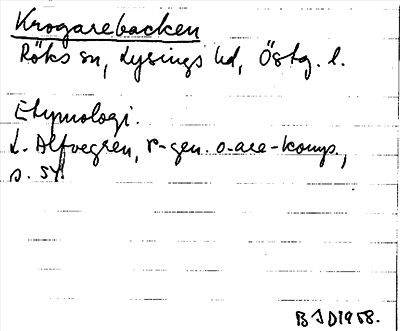 Krogarebacken
Röks sn, Lysings hd, Östg. l.
Etymologi.
L. Alfvegren, r-gen. o. are-komp.,
s. 54.
BJD1958.